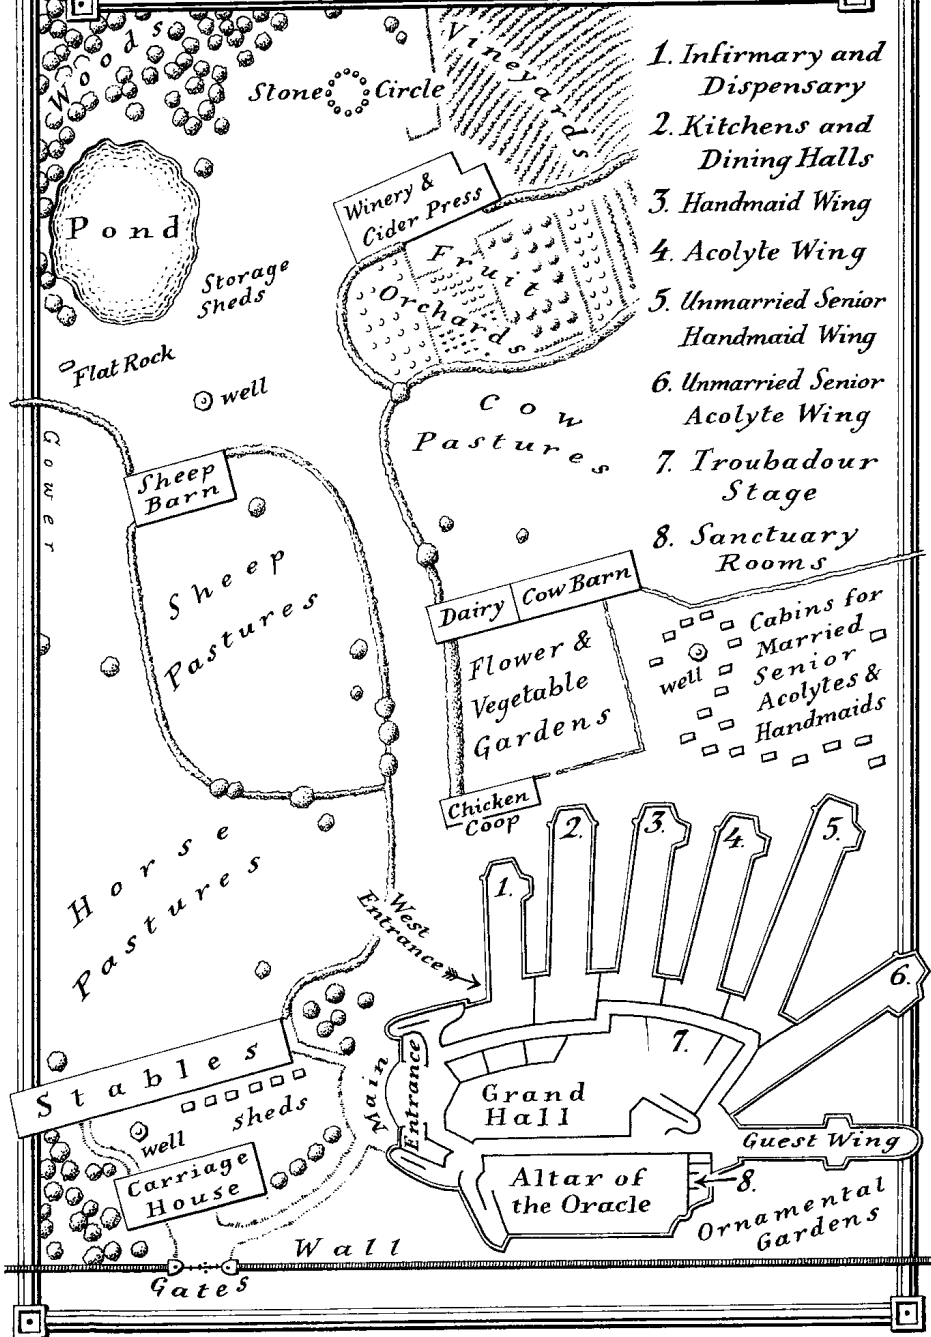 Woods
Stone Circle
Vineyards
1. Infirmary and
Dispensary
2. Kitchens and
Dining Halls
3. Handmaid Wing
4. Acolyte Wing
5. Unmarried Senior
Handmaid Wing
6. Unmarried Senior
Acolyte Wing
7. Troubadour
Stage
8. Sanctuary
Rooms
Winery &
Cider Press
Pond
Fruit
Orchards
Storage
Sheds
Flat Rock
well
Cow
Pastures
Gower
Sheep
Barn
Sheep
Pastures
Dairy
Cow Barn
Flower &
Vegetable
Gardens
Cabins for
Married
Senior
Acolytes &
Handmaids
well
Chicken
Coop
Horse
Pastures
1.
2.
3.
4.
5.
6.
West
Entrance
Stables
sheds
well
Carriage
House
Main
Entrance
7.
Grand
Hall
Guest Wing
Altar of
the Oracle
8.
Ornamental
Gardens
Wall
Gates